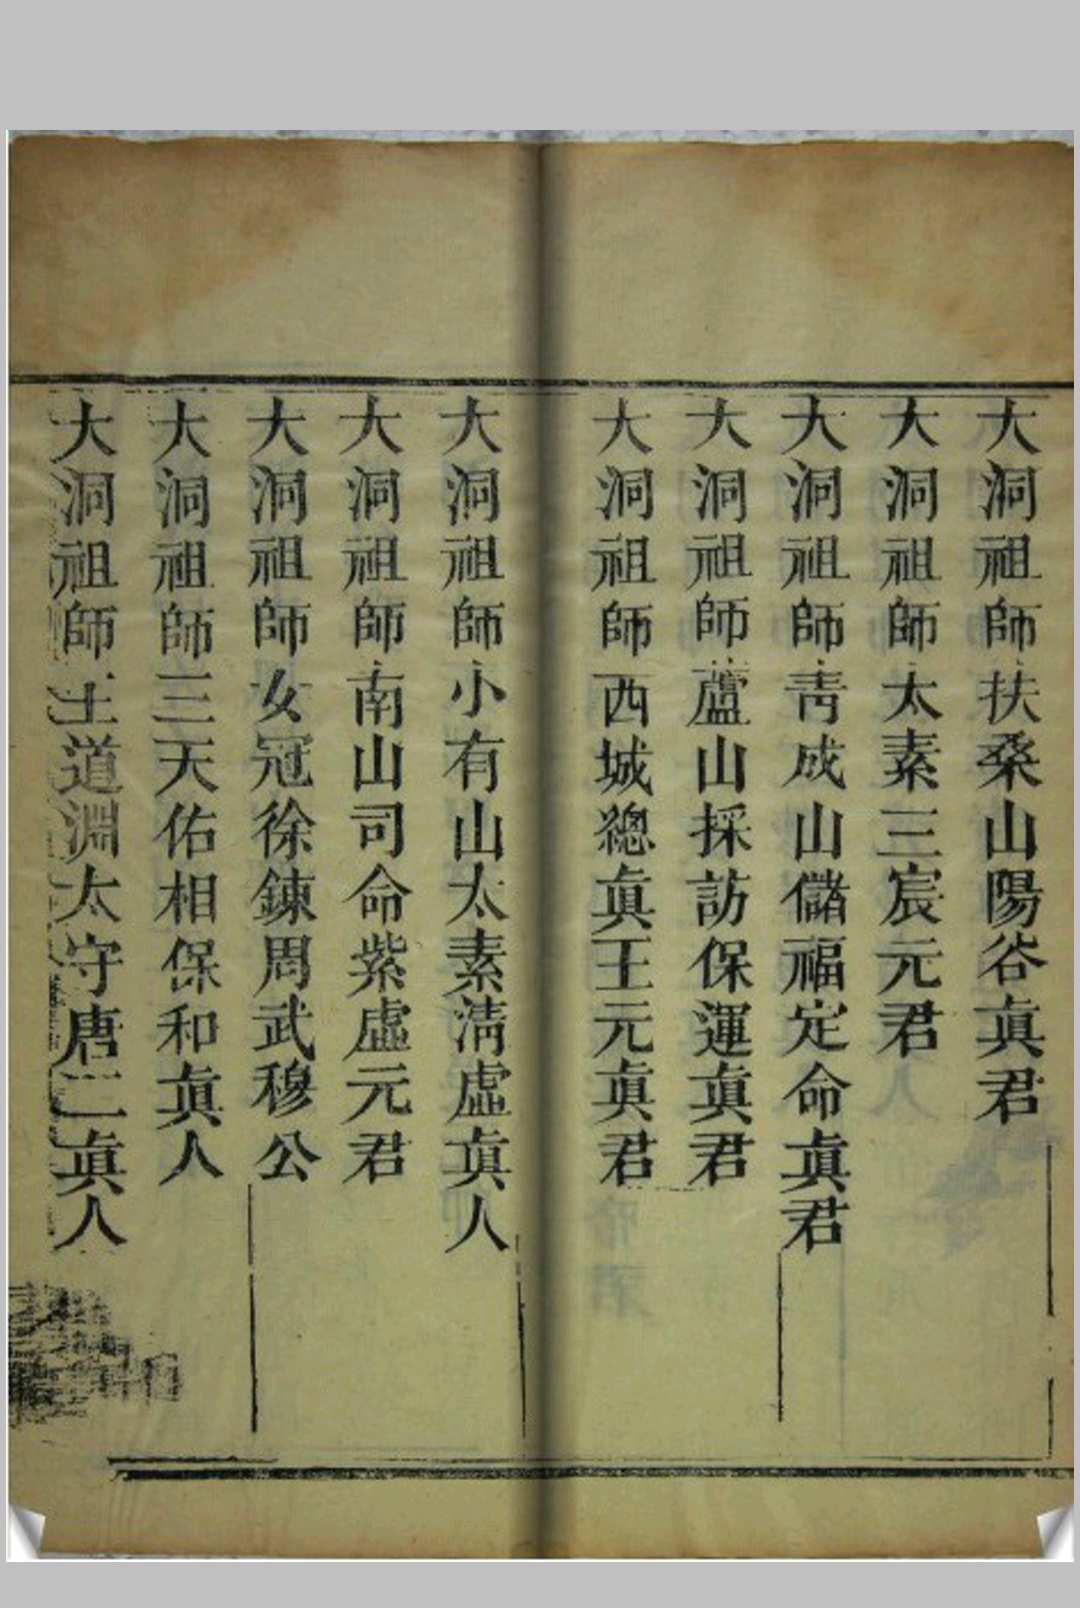 大洞祖師扶桑山陽谷眞君
大洞祖師太素三宸元君
大洞祖師靑成山儲福定命眞君
大洞祖師蘆山採訪保運眞君
大洞祖師西城總眞王元眞君
大洞祖師小有山太素淸虛眞人
大洞祖師南山司命紫虛元君
大洞祖師女冠徐鍊周武穆公
大洞祖師三天佑相保和眞人
大洞祖師王道淵太守唐二眞人